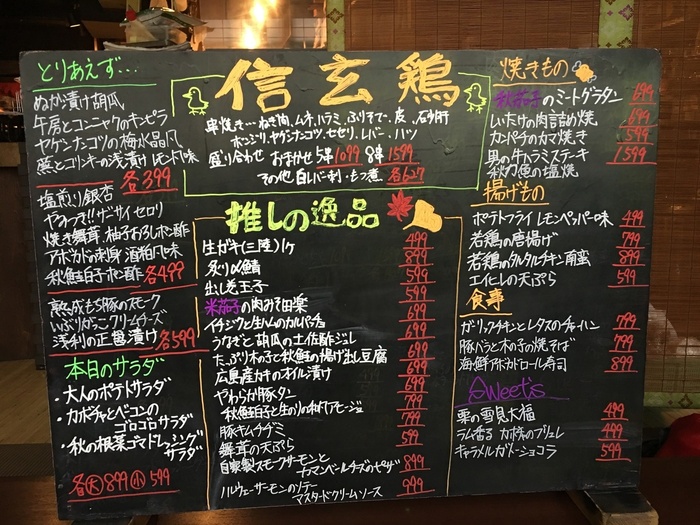 とりあえず…
ぬか漬け胡瓜
牛房とコンニャクのキンピラ
ヤゲンナンコツの梅水晶風
蕪とコリンキーの浅漬け レモン下味
各399
塩煎り銀杏
やみつき!!ザーサイセロリ
焼き舞茸 柚子おろしポン酢
アボカドの刺身 酒粕風味
秋鮭白子ポン酢 各499
熟成もち豚のスモーク
いぶりがっこクリームチーズ
浅利の正醤漬け 各599
本日のサラダ
・大人のポテトサラダ
・カボチャとベーコンの
ゴロゴロサラダ
・秋の根菜ゴマドレッシング
サラダ
各大899 小599
信玄鶏
串焼き…ねぎ肉、ムネ、ハラミ、ぶりそで、皮、砂肝
ボンジリ、ヤゲンナンコツ、セセリ、レバー、ハツ
盛り合わせ おまかせ 5串1099 8串1599
その他 白レバー刺・もつ煮 各627
推しの逸品
生ガキ(三陸)1ケ 499
炙り〆鯖 899
出し巻玉子 599
米茄子の肉みそ田楽 599
イチジクと生ハムのカルパッチョ 699
うなぎと胡瓜の土佐酢ジュレ 699
たっぷり木の子と秋鮭の揚げ出し豆腐 699
広島産カキのオイル漬け 699
やわらか豚タン 699
秋鮭白子と生のりの和風アヒージョ 799
豚キムチヂミ 699
舞茸の天ぷら 599
自家製スモークサーモンと
カマンベールチーズのピザ 899
ハルウェーサーモンのソテー
マスタードクリームソース 999
焼きもの
秋茄子のミートグラタン 699
しいたけの肉詰め焼 699
カンパチのカマ焼き 599
男の牛ハラミステーキ 1599
秋刀魚の塩焼
揚げもの
ポテトフライ レモンペッパー味 499
若鶏の唐揚げ 799
若鶏のタルタルチキン南蛮 899
エイヒレの天ぷら 599
食事
ガーリックチキンとレタスのチャーハン 799
豚バラと木の子の焼そば 799
海鮮アボカドロール寿司 899
Sweet's
栗の雪見大福 499
ラム香る カボチャのブリュレ 499
キャラメルガトーショコラ 599